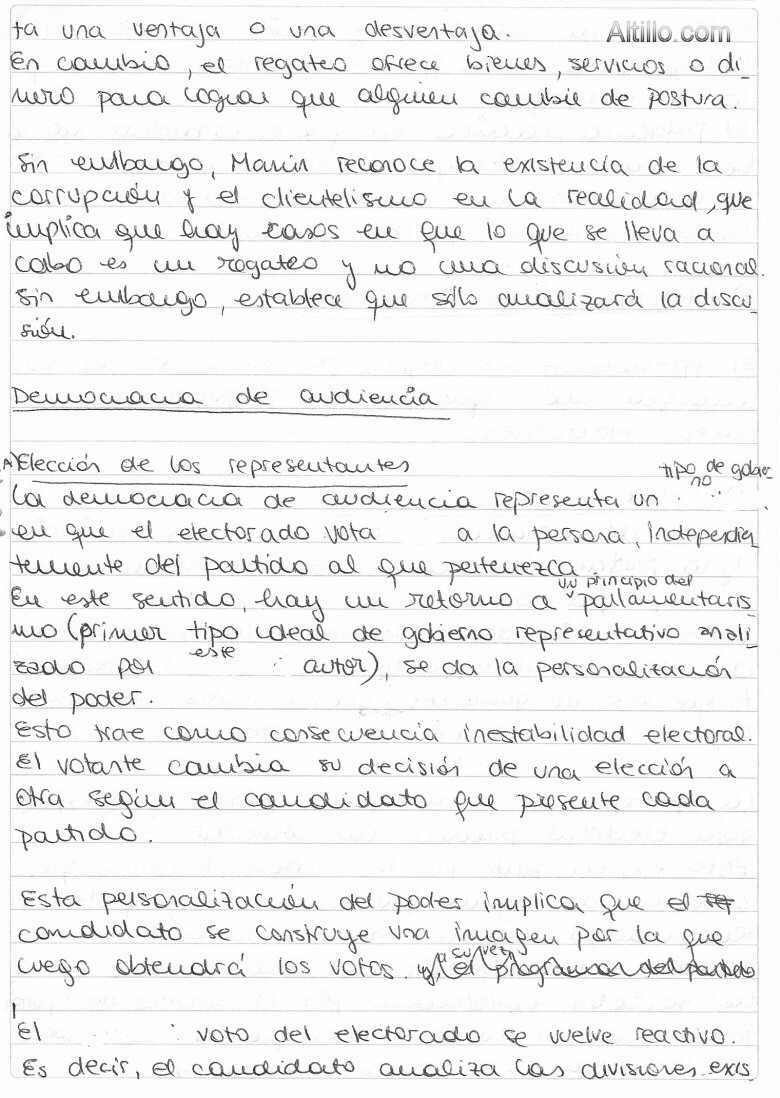 ta una ventaja o una desventaja.
Altillo.com
En cambio, el regateo ofrece bienes, servicios o di
nero para lograr que alguien cambie de postura.
Sin embargo, Manin reconoce la existencia de la
corrupción y el clientelismo en la realidad, que
implica que hay casos en que lo que se lleva a
cabo es un regateo y no una discusión racional.
Sin embargo, establece que sólo analizará la discu
sión.
Democracia de audiencia
A) Elección de los representantes
tipo de gobier
no
La democracia de audiencia representa un
en que el electorado vota a la persona, independien
temente del partido al que pertenezca
un principio del
En este sentido, hay un retorno a parlamentaris
mo (primer tipo ideal de gobierno representativo anali
zado por este autor), se da la personalización
del poder.
Esto trae como consecuencia inestabilidad electoral.
El votante cambia su decisión de una elección a
otra según el candidato que presente cada
partido.
Esta personalización del poder implica que el
candidato se construye una imagen por la que
a su vez
luego obtendrá los votos. y el programa del partido
El voto del electorado se vuelve reactivo.
Es decir, el candidato analiza las divisiones exis